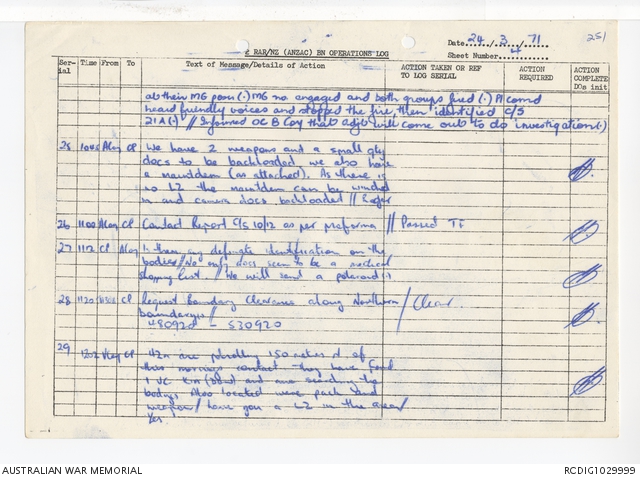 251
2 RAR/NZ (ANZAC) BN OPERATIONS LOG
Date 24/3/71
Sheet Number 4
Serial Time From To Text of Message/Details of Action ACTION TAKEN OR REF TO LOG SERIAL ACTION REQUIRED ACTION COMPLETE DOs init
as their MG posn (.) MG no engaged and both groups fired (.) Pl comd
heard friendly voices and stopped the fire, then identified C/S
21A (.) // Informed OC B Coy that adjt will come out to do investigation (.)
25 1045 A Coy CP We have 2 weapons and a small qty
docs to be backloaded, we also have
a (as attached). As there is
no LZ the can be winched
in and camera docs backloaded // Roger
26 1100 A Coy CP Contact Report C/S 10/12 as per proforma // Passed TF
27 1112 CP A Coy Is there any definite identification on the
bodies / No only docs seem to be a medical
shopping list. / We will send a polaroid (.)
28 1120 CP Request Boundary Clearance along Northern / Clear.
boundary //
480920 - 530920
29 1202 V Coy CP 42 are patrolling 150 metres of
this mornings contact they have found
1 VC KIA (Body) and are searching the
body. Also located were pack and
weapon / have you a LZ in the area /
Yes.
AUSTRALIAN WAR MEMORIAL
RCDIG1029999